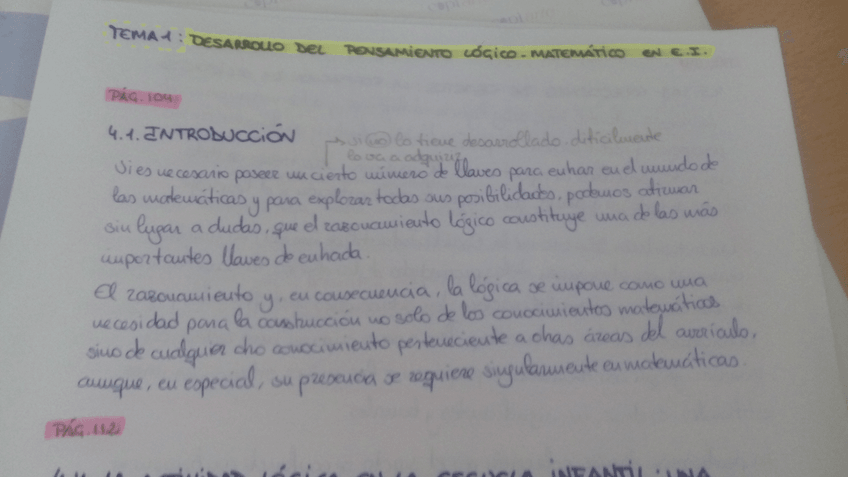 TEMA 1: DESARROLLO DEL PENSAMIENTO LÓGICO-MATEMÁTICO EN E.I.
PÁG. 104
4.1. INTRODUCCIÓN
→ si no lo tiene desarrollado, dificilmente
lo va a adquirir
Si es necesario poseer un cierto número de llaves para entrar en el mundo de
las matemáticas y para explorar todas sus posibilidades, podemos afirmar
sin lugar a dudas, que el razonamiento lógico constituye una de las más
importantes llaves de entrada.
El razonamiento y, en consecuencia, la lógica se impone como una
necesidad para la construcción no solo de los conocimientos matemáticos
sino de cualquier otro conocimiento perteneciente a otras áreas del currículo,
aunque, en especial, su presencia se requiere singularmente en matemáticas.
PÁG. 112
LA ACTIVIDAD LÓGICA EN LA ESCUELA INFANTIL: UNA